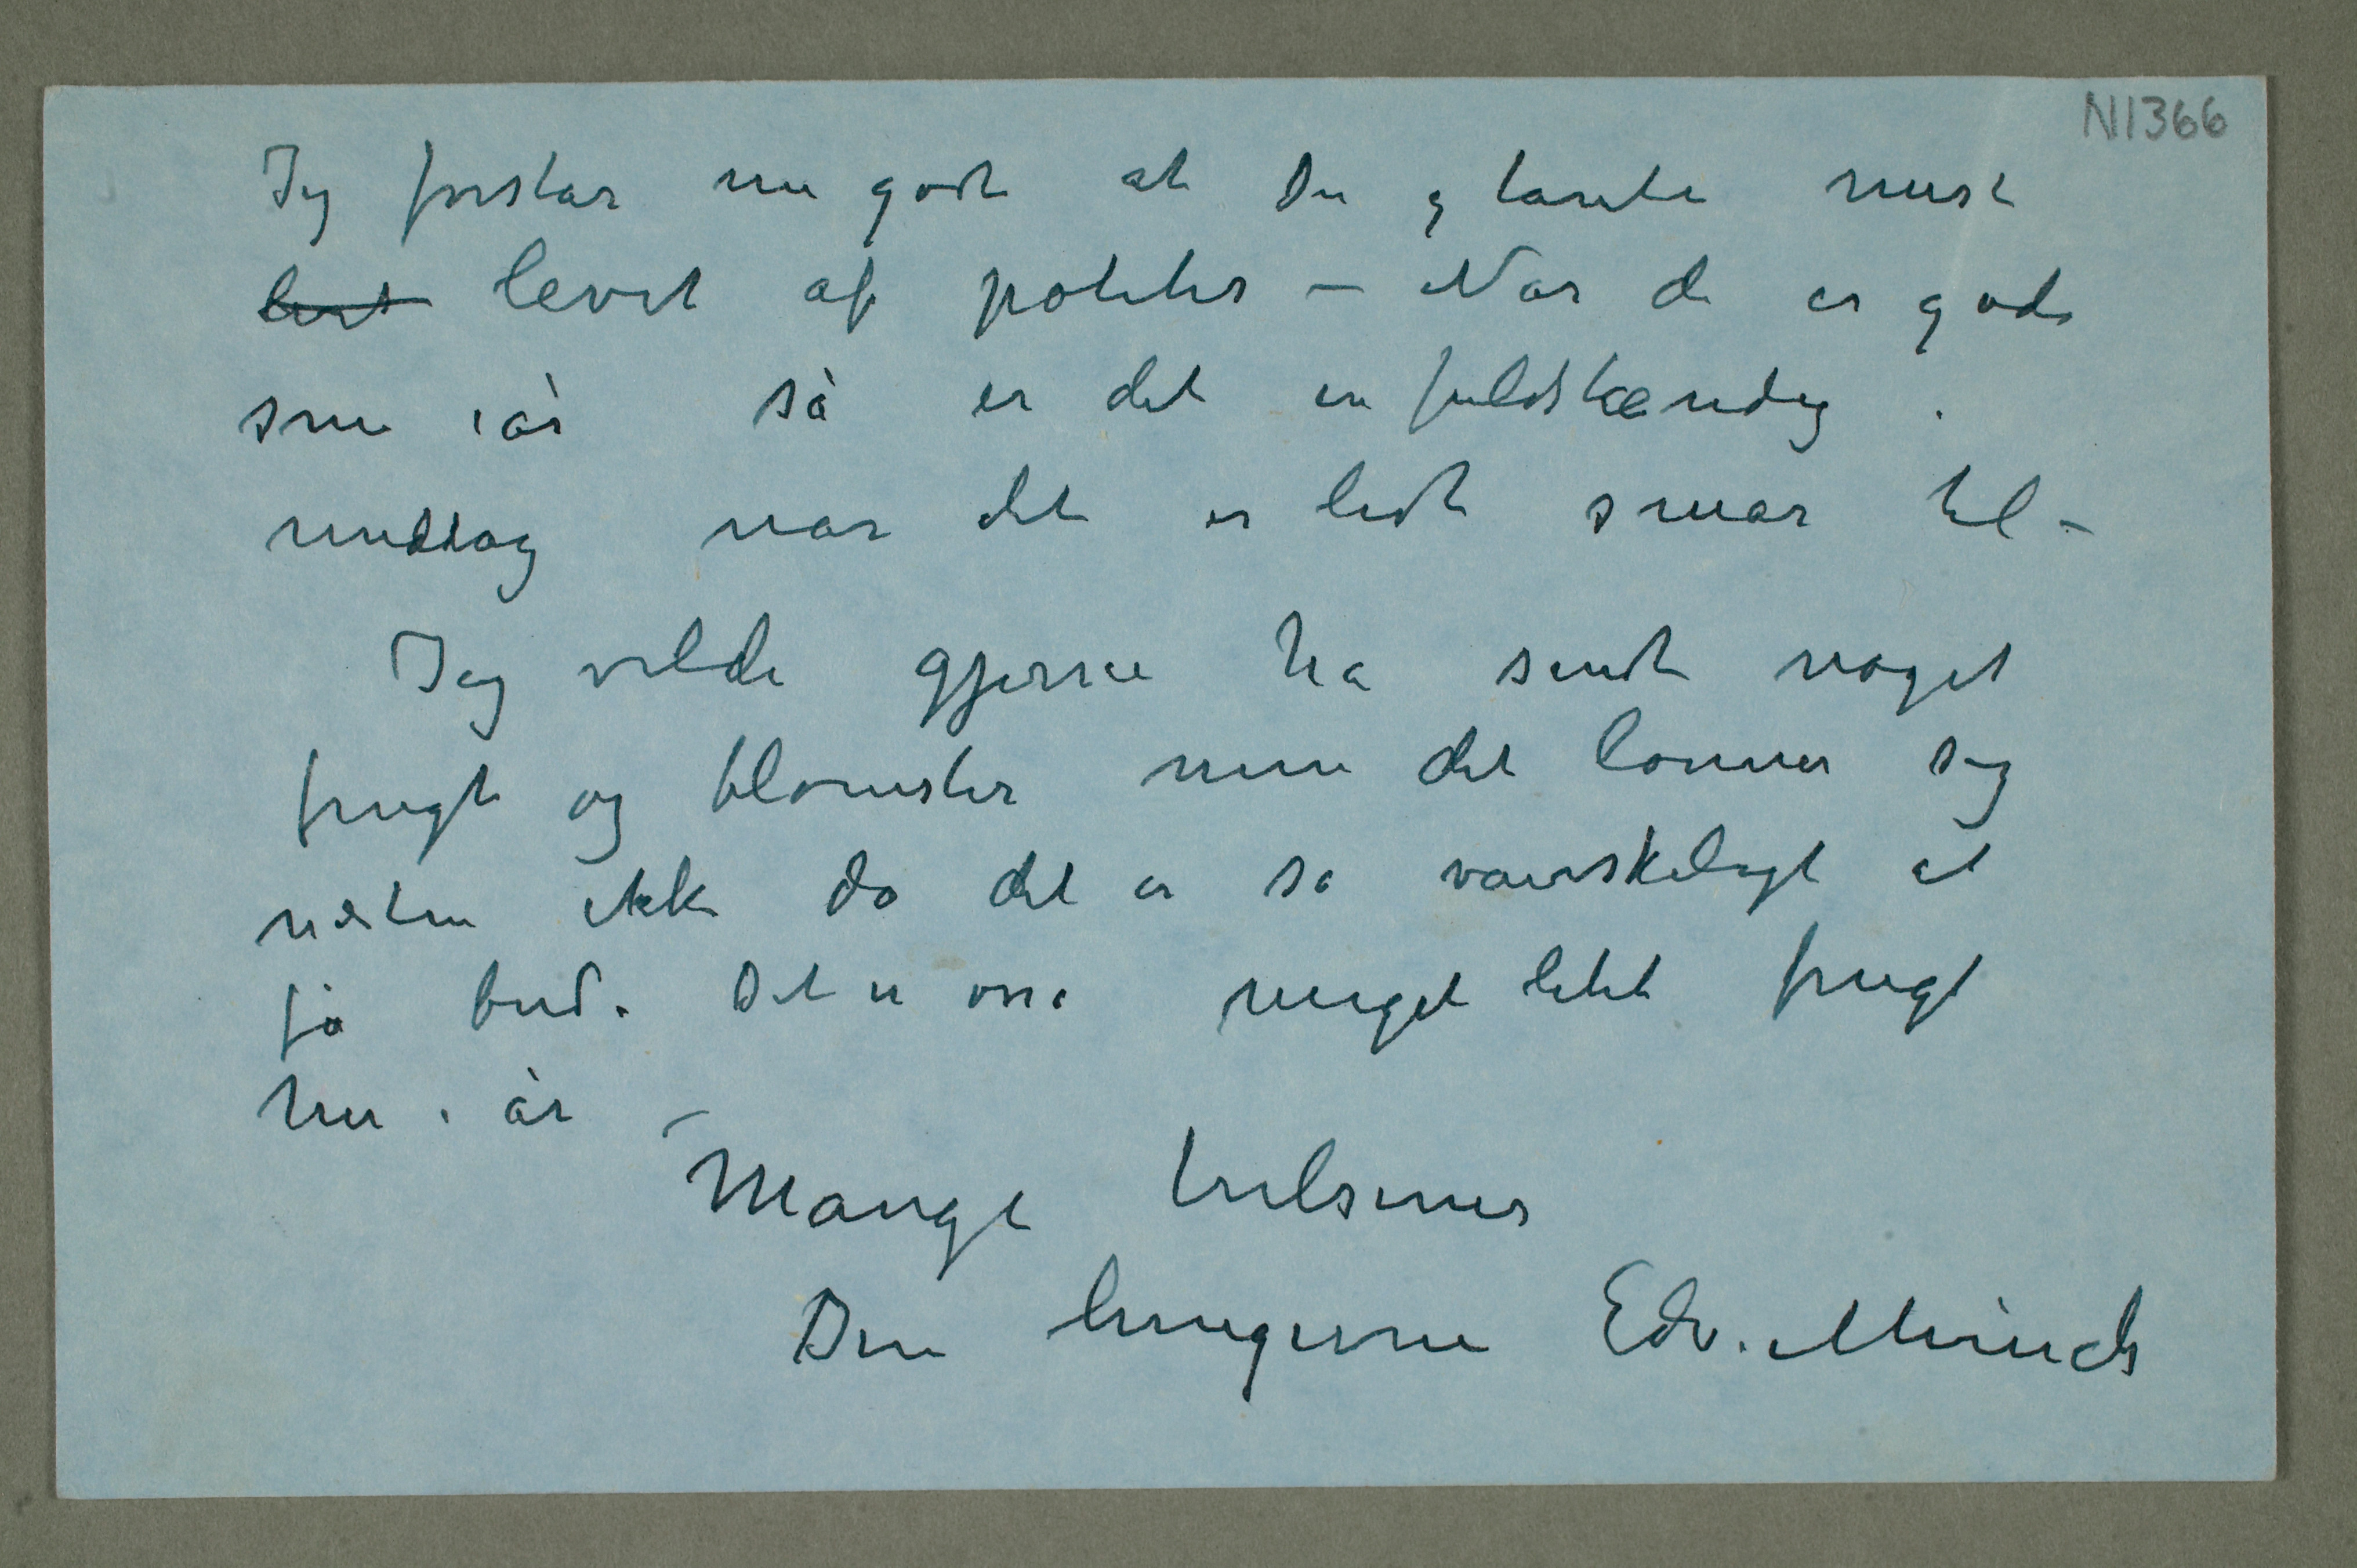 N1366
Jeg forstår nu godt at Du og tante mest
levet af poteter – Når de er gode
som iår så er det en fuldstændig
middag når det er lidt smør til –
Jeg vilde gjerne ha sendt noget
frugt og blomster men det lønner sig
næsten ikke da det er så vanskeligt at
få bud. Det er osså meget lidt frugt
her i år –
Mange hilsener
Din hengivne Edv. Munch